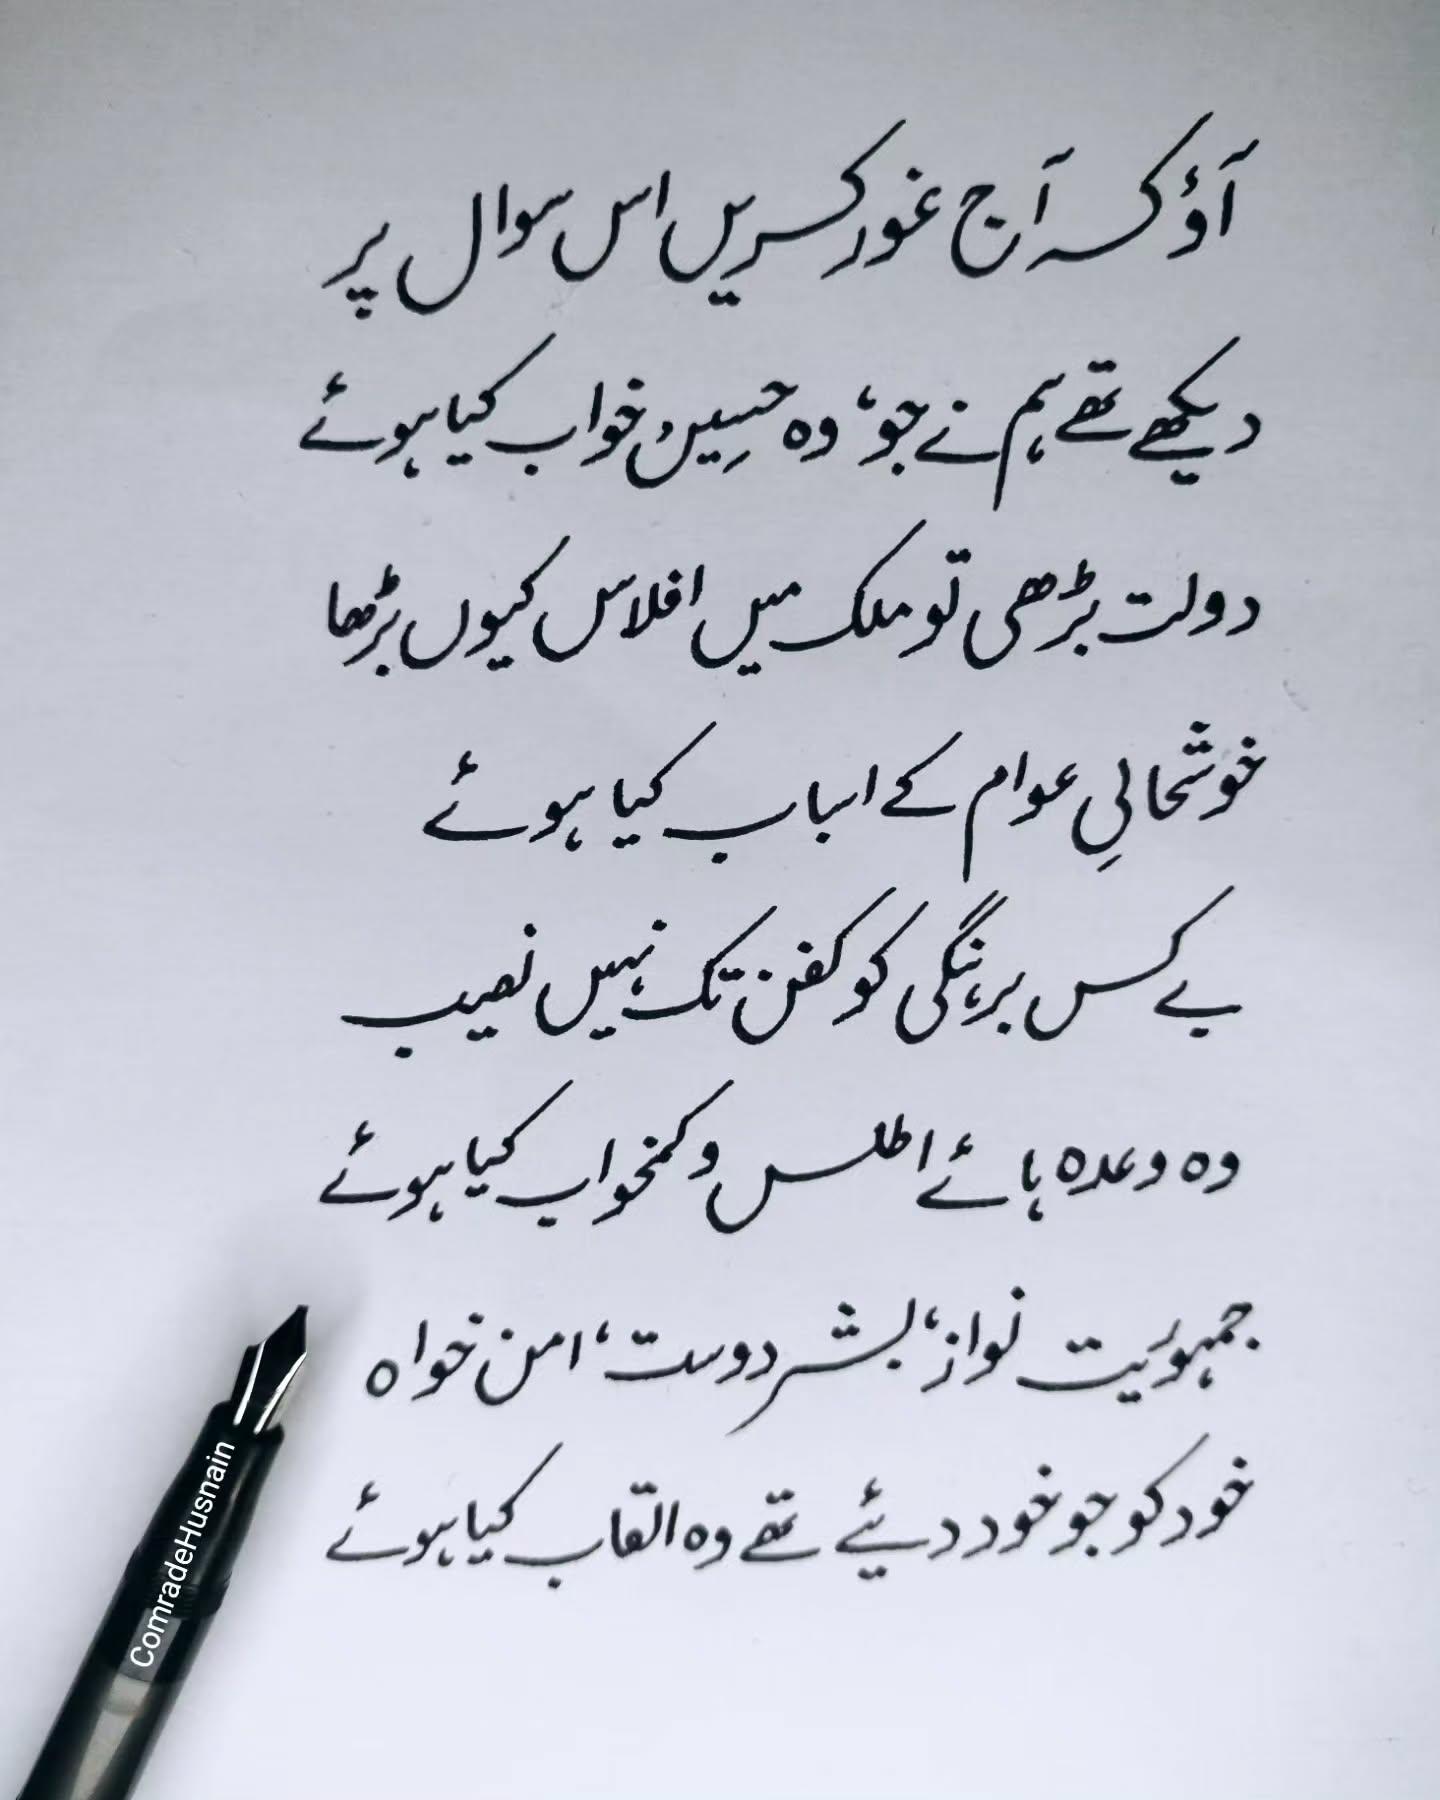 آؤ کہ آج غور کریں اس سوال پر
دیکھے تھے ہم نے جو، وہ حسِیں خواب کیا ہوئے
دولت بڑھی تو ملک میں افلاس کیوں بڑھا
خوشحالیِ عوام کے اسباب کیا ہوئے
بے کس برہنگی کو کفن تک نہیں نصیب
وہ وعدہ ہائے اطلس و کمخواب کیا ہوئے
جمہوئیت نواز، بشر دوست، امن خواہ
خود کو جو خود دئیے تھے وہ القاب کیا ہوئے
ComradeHusnain